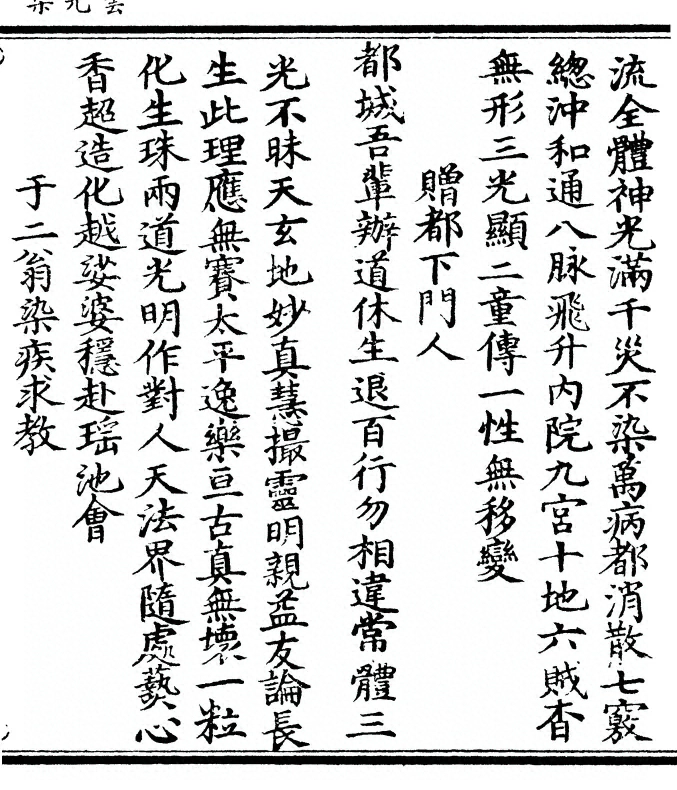 流全體神光滿千災不染萬病都消散七竅
總沖和通八脉飛升內院九宮十地六賊杳
無形三光顯二童傳一性無移變
贈都下門人
都城吾輩辦道休生退百行勿相違常體三
光不昧天玄地妙真慧撮靈明親益友論長
生此理應無賽太平逸樂亘古真無壞一粒
化生珠兩道光明作對人天法界隨處爇心
香超造化越娑婆穩赴瑶池會
于二翁染疾求教